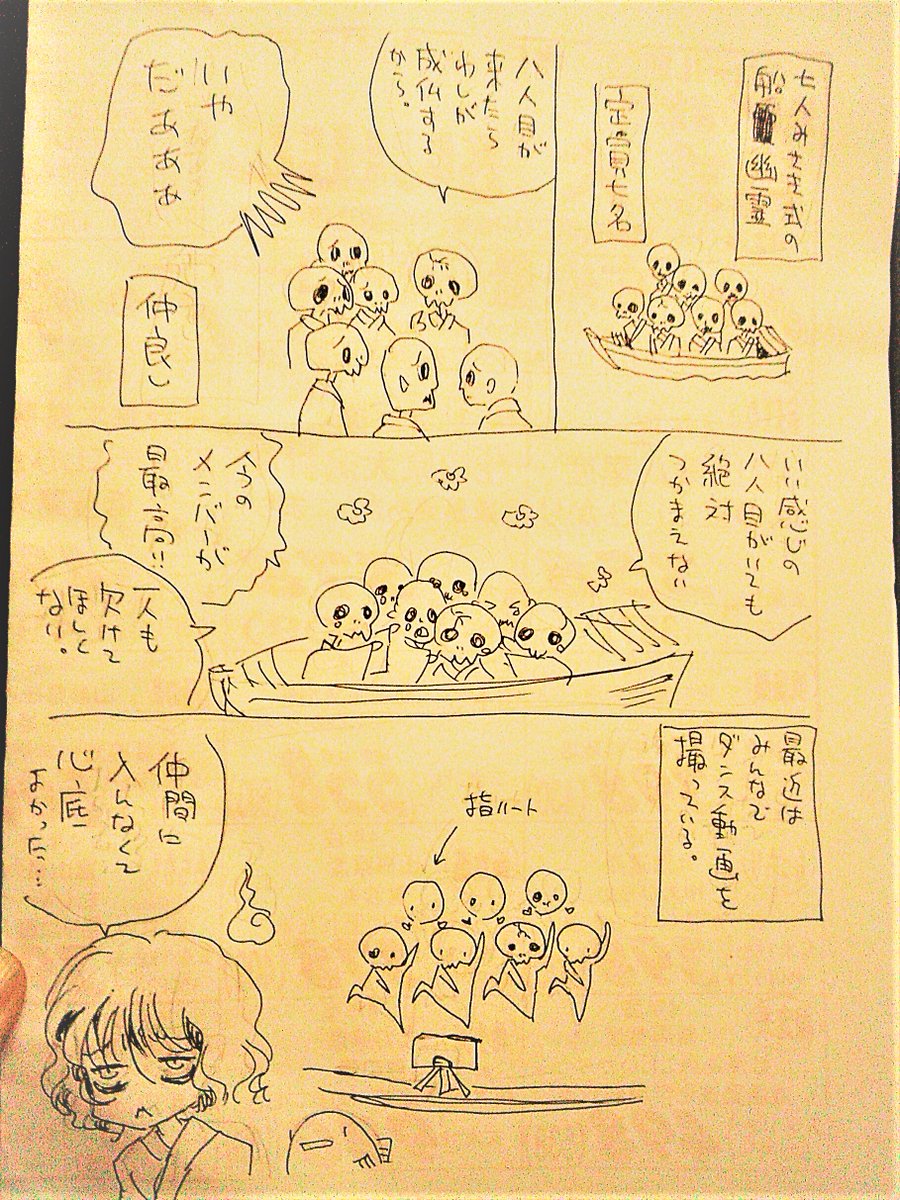 七人みさき式の
船幽霊
定員七名
八人目が
来たら
わしが
成仏する
から。
いや
だあああ
仲良し
いい感じの
八人目がいても
絶対
つかまえない
今の
メンバーが
最高!!
一人も
欠けて
ほしく
ない。
最近は
みんなで
ダンス動画を
撮っている。
指ハート
仲間に
入んなくて
心底
よかった…